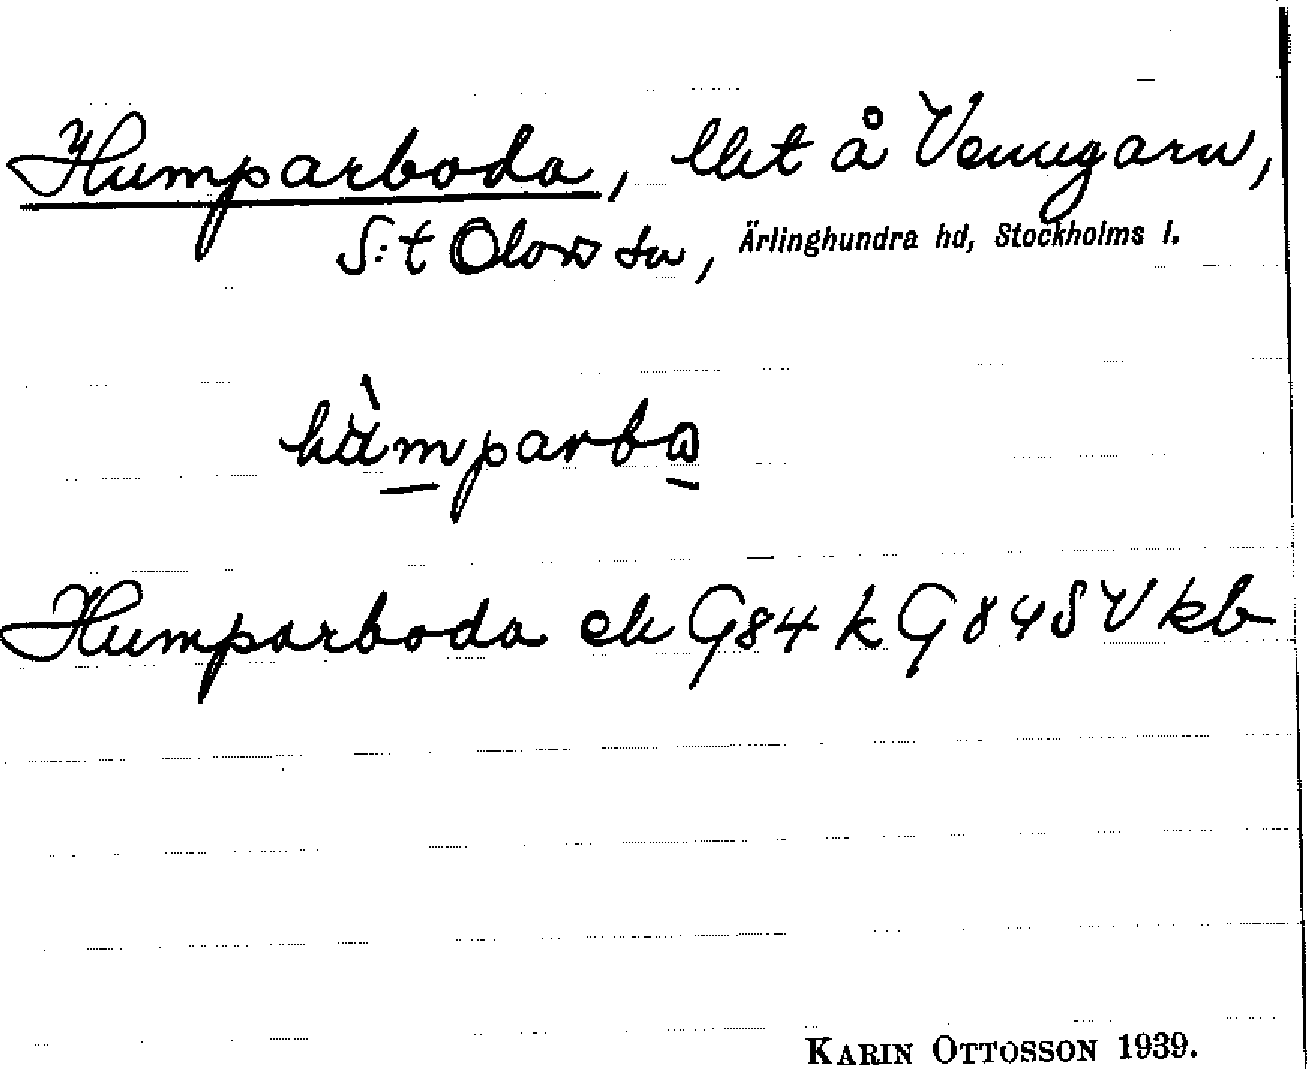 Humparboda, llet å Venngarn,
S:t Olovs sn, Ärlinghundra hd, Stockholms l.
hùmparbo
Humparboda ek G84 k G84 SV kb
KARIN OTTOSSON 1939.